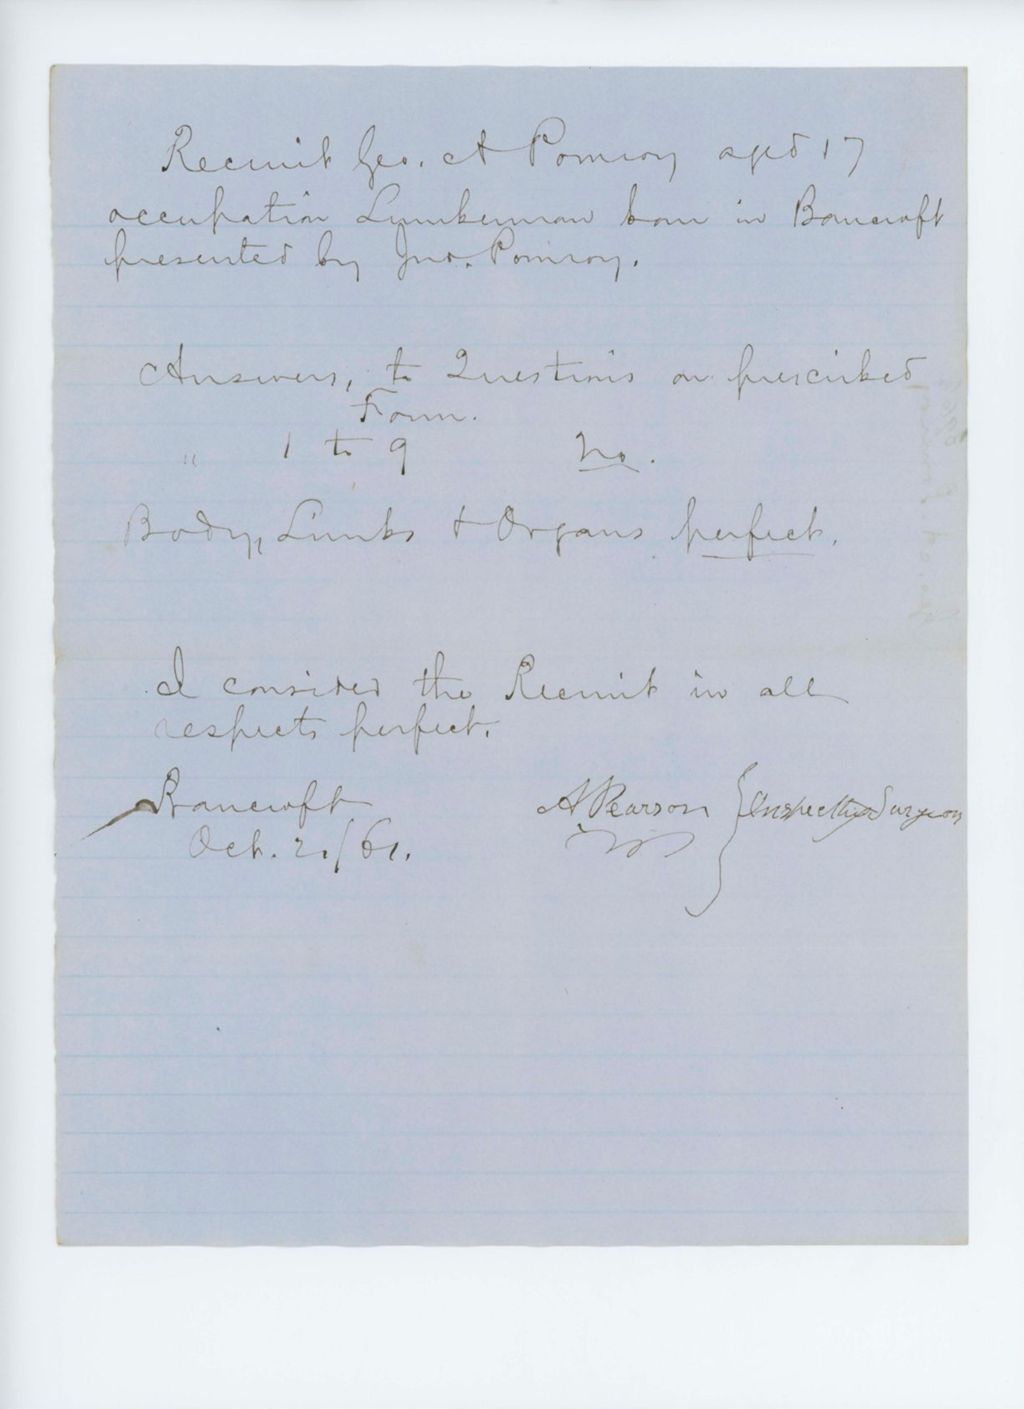 Recruit Geo. A Pomroy aged 17
occupation Lumberman born in Bancroft
presented by Jno. Pomroy.
Answers, to Questions on prescribed
Form.
" 1 to 9 No.
Body, Limbs & Organs perfect.
I consider the Recruit in all
respects perfect.
Bancroft A Pearson } Inspecting Surgeon
Oct. 21/61.